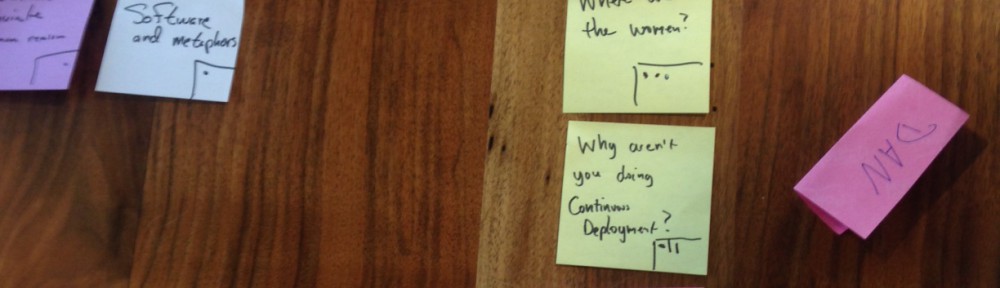 Software
and metaphors
the women?
Why aren't
you doing
Continuous
Deployment?
DAN